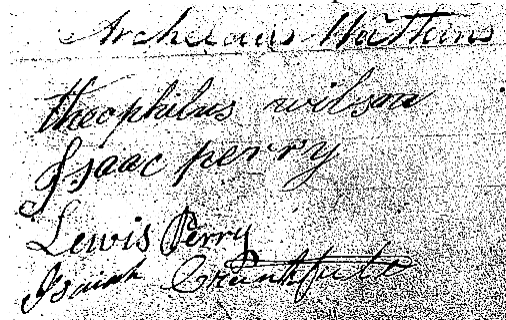 Archelaus Watkins
theophilus wilson
Isaac perry
Lewis Perry
Isaiah